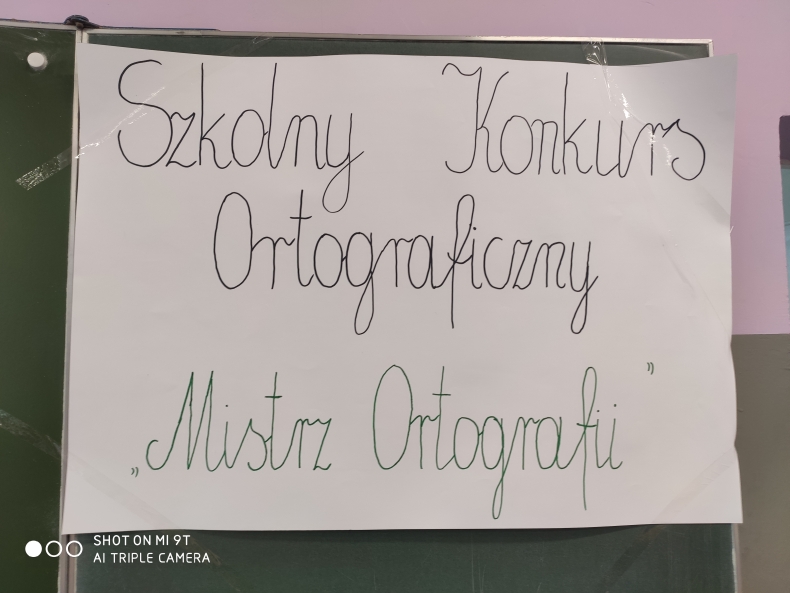 Szkolny Konkurs
Ortograficzny
„Mistrz Ortografii”
SHOT ON MI 9T
AI TRIPLE CAMERA